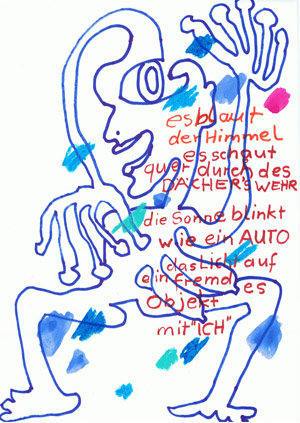 es blaut
der Himmel
es schaut
quer durch des
DÄCHER'S WEHR
die Sonne blinkt
wie ein AUTO
das Licht auf
ein fremdes
Objekt
mit "ICH"